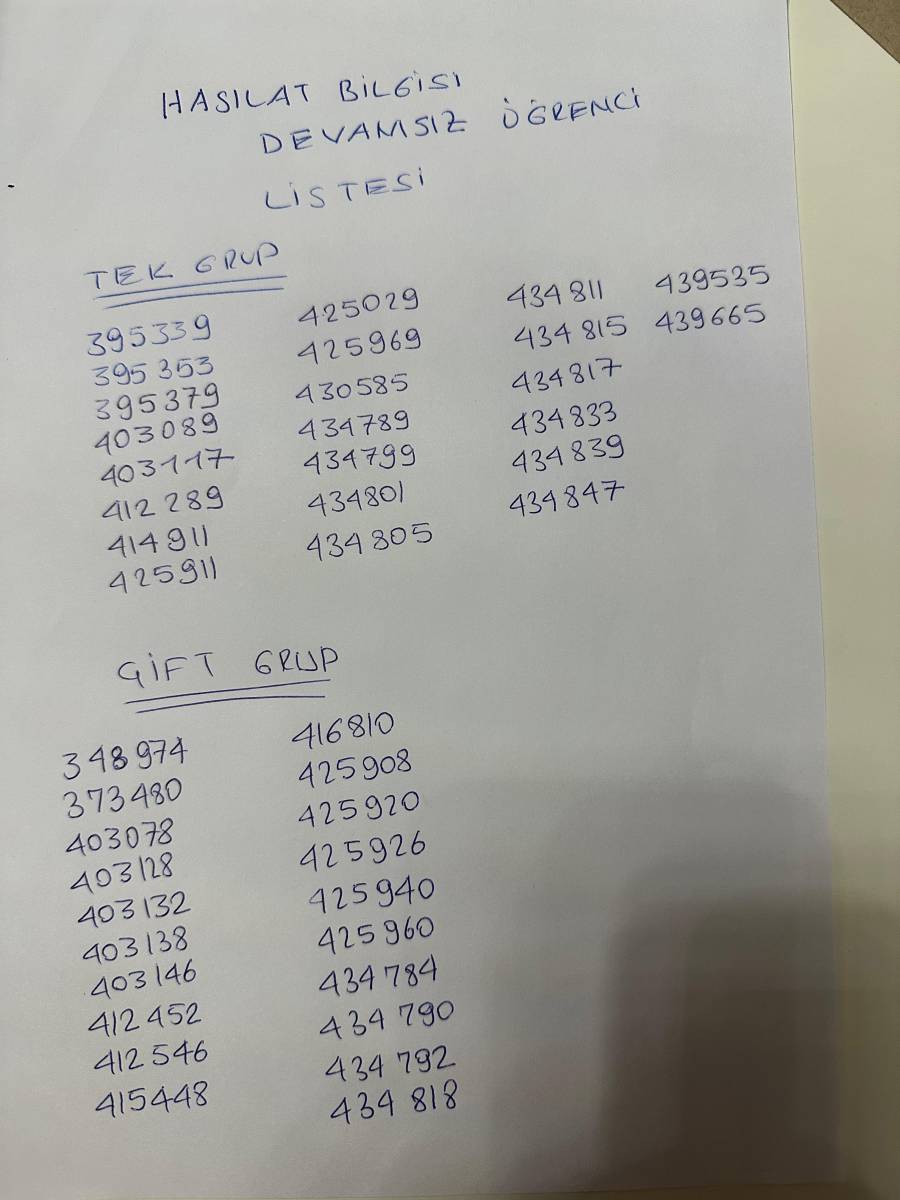 HASILAT BİLGİSİ
DEVAMSIZ ÖĞRENCİ
LİSTESİ
TEK GRUP
395339
395353
395379
403089
403117
412289
414911
425911
425029
425969
430585
434789
434799
434801
434805
434811
434815
434817
434833
434839
434847
439535
439665
ÇİFT GRUP
348974
373480
403078
403128
403132
403138
403146
412452
412546
415448
416810
425908
425920
425926
425940
425960
434784
434790
434792
434818